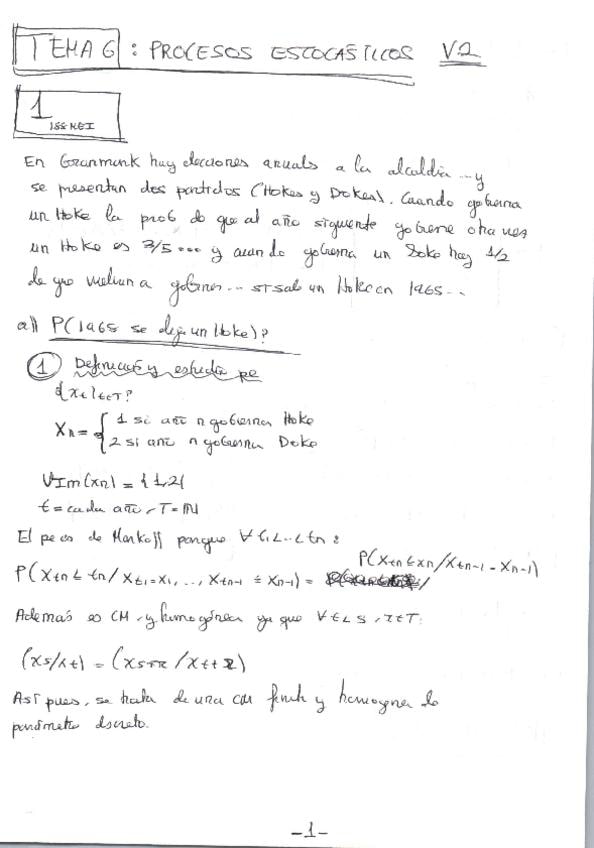 TEMA 6 : PROCESOS ESTOCÁSTICOS V2
1
En Granmunk hay elecciones anuals a la alcaldia ... y
se presentan dos partidos (Hokes y Dokes). Cuando gobierna
un Hoke la prob de que al año siguiente gobierne otra vez
un Hoke es 3/5 ... y cuando gobierna un Doke hay 1/2
de que vuelvan a gobernar ... si salió un Hoke en 1965 ..
a)) P(1965 se elija un Hoke)?
1 Definición y estudio pe
{xt}t∈T?
Xn = { 1 si año n gobierna Hoke
2 si año n gobierna Doke
VIm(xn) = {1,2}
t = cada año, T = ℕ
El pe es de Markoff porque ∀ t1<..<tn :
P(Xtn ≤ xn / Xtn-1 = Xn-1)
P(Xtn ≤ tn / Xt1=x1, .., Xtn-1 = Xn-1) =
Además es CM y homogénea ya que ∀ t<s, r∈T:
(Xs/Xt) = (Xs+r / Xt+r)
Así pues, se trata de una CM finita y homogenea de
parámetro discreto.
-1-